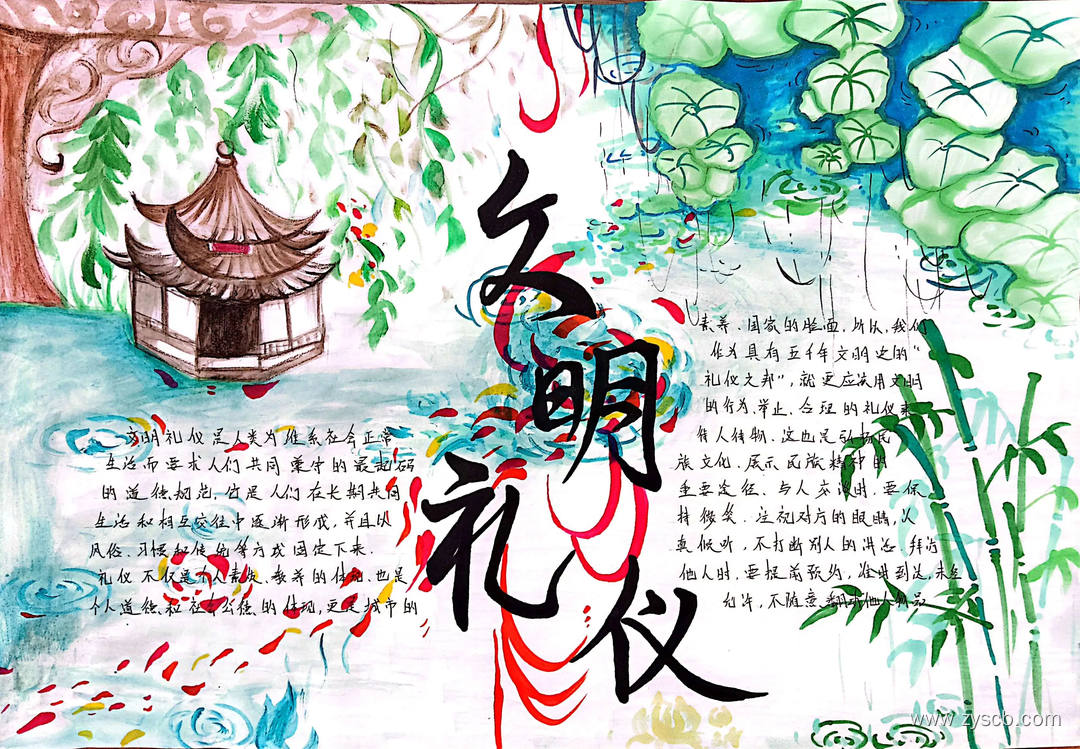 文明礼仪
文明礼仪是人类为维系社会正常
生活而要求人们共同遵守的最起码
的道德规范,它是人们在长期共同
生活和相互交往中逐渐形成,并且以
风俗、习惯和传统等方式固定下来.
礼仪不仅是个人素质、教养的体现,也是
个人道德和社会公德的体现,更是城市的
素养、国家的脸面,所以,我们
作为具有五千年文明史的“
礼仪之邦”,就更应该用文明
的行为、举止、合理的礼仪来
待人待物.这也是弘扬民
族文化、展示民族精神的
重要途径、与人交谈时,要保
持微笑、注视对方的眼睛,认
真倾听,不打断别人的讲话.拜访
他人时,要提前预约,准时到达,未经
允许,不随意翻动他人物品
www.zyscb.com